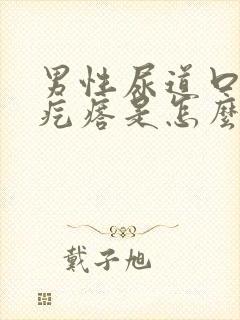 男性尿道口
疙瘩是怎麼
戴子旭